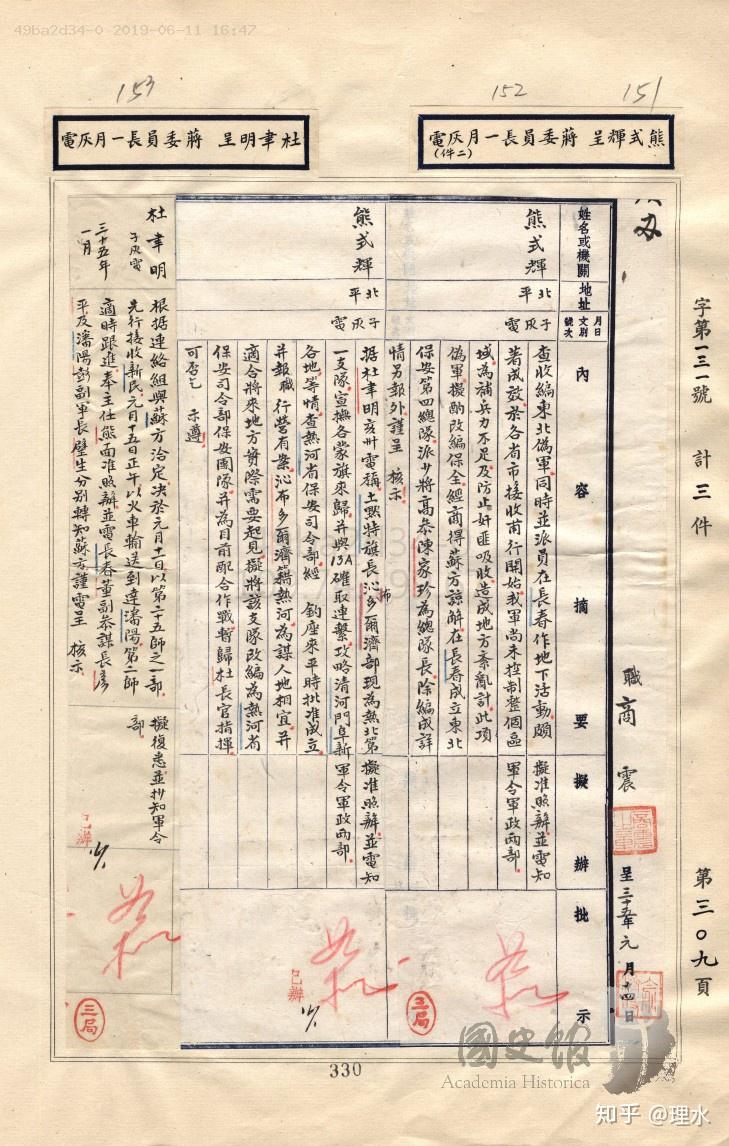 49ba2d34-0 2019-06-11 16:47
151
152
153
熊式輝呈 蔣委員長一月灰電
(二件)
杜聿明呈 蔣委員長一月灰電
字第一三一號 計三件 第三〇九頁
職 商 震 呈 三十五年元月十四日
姓名或機關
地址
月日
文別
號次
內容摘要
擬辦
批示
熊式輝
北平
子灰電
查收編東北偽軍同時並派員在長春作地下活動頗
著成效於各省市接收前行開始我軍尚未控制整個區
域為補兵力不足及防止奸匪吸收造成地方紊亂計此項
偽軍擬酌改編保全經商得蘇方諒解在長春成立東北
保安第四總隊派少將高參陳家珍為總隊長除編成詳
情另報外謹呈 核示
擬准照辦並電知
軍令軍政兩部
如擬
三局
熊式輝
北平
子灰電
据杜聿明亥卅電稱土默特旗長沁布多爾濟部現為熱北第
一支隊宣撫各蒙旗來歸并與13A確取連繫攻略清河門阜新
各地等情查熱河省保安司令部經 鈞座來平時批准成立
并報職行營有案沁布多爾濟籍熱河為謀人地相宜并
適合將來地方實際需要起見擬將該支隊改編為熱河省
保安司令部保安團隊并為目前配合作戰暫歸杜長官指揮
可否乞 示遵
擬准照辦並電知
軍令軍政兩部
如擬
已辦
杜聿明
子灰電
三十五年
一月
根据連絡組與蘇方洽定決於元月十日以第二十五師之一部
先行接收新民元月十五日正午以火車輸送到達瀋陽第二師
適時跟進奉主任熊面准照辦並電長春董副參謀長彥
平及瀋陽彭副軍長璧生分別轉知蘇方謹電呈 核示
擬復悉並抄知軍令
部
已辦
如擬
三局
330
國史館
Academia Historica
知乎 @理水